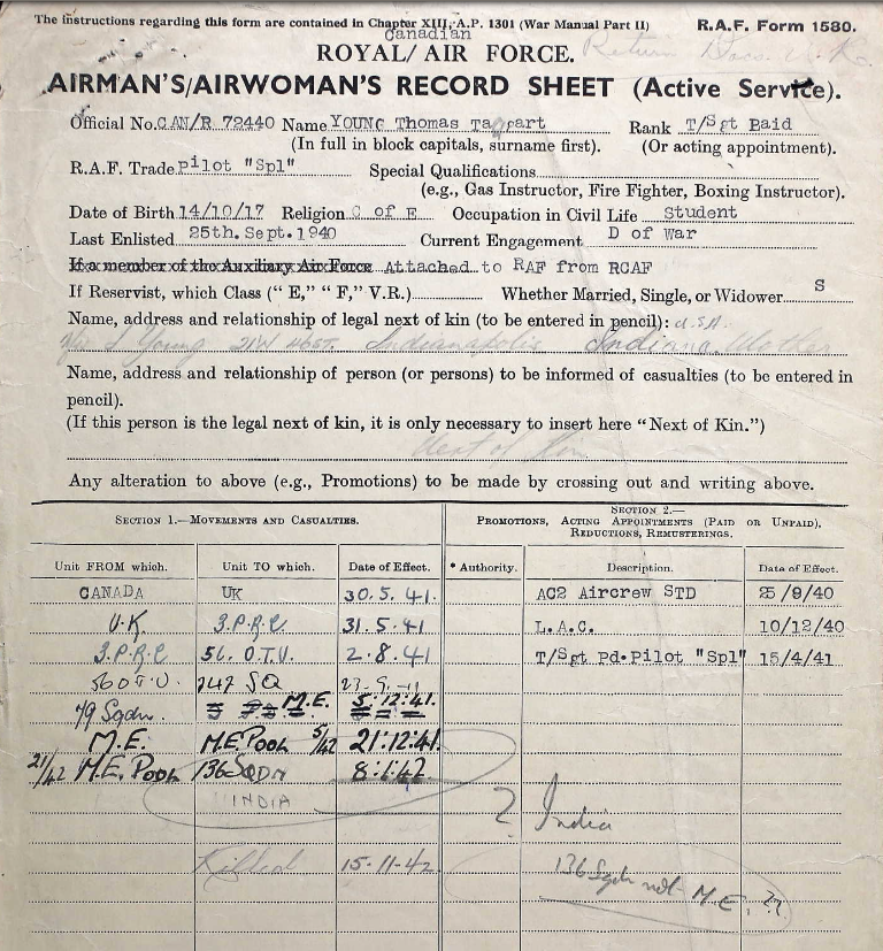 The instructions regarding this form are contained in Chapter XIII, A.P. 1301 (War Manual Part II) R.A.F. Form 1580.
Canadian
ROYAL/ AIR FORCE.
AIRMAN'S/AIRWOMAN'S RECORD SHEET (Active Service).
Official No. CAN/R 72440 Name YOUNG Thomas Taggart Rank T/Sgt Paid
(In full in block capitals, surname first). (Or acting appointment).
R.A.F. Trade Pilot "Spl" Special Qualifications
(e.g., Gas Instructor, Fire Fighter, Boxing Instructor).
Date of Birth 14/10/17 Religion C of E Occupation in Civil Life Student
Last Enlisted 25th. Sept. 1940 Current Engagement D of War
If a member of the Auxiliary Air Force Attached to RAF from RCAF
If Reservist, which Class ("E," "F," V.R.) Whether Married, Single, or Widower S
Name, address and relationship of legal next of kin (to be entered in pencil): U.S.A.
Young Indianapolis Indiana. Mother
Name, address and relationship of person (or persons) to be informed of casualties (to be entered in
pencil).
(If this person is the legal next of kin, it is only necessary to insert here "Next of Kin.")
Next of Kin
Any alteration to above (e.g., Promotions) to be made by crossing out and writing above.
SECTION 1.—MOVEMENTS AND CASUALTIES.
SECTION 2.—
PROMOTIONS, ACTING APPOINTMENTS (PAID OR UNPAID),
REDUCTIONS, REMUSTERINGS.
Unit FROM which. Unit TO which. Date of Effect. * Authority. Description. Date of Effect.
CANADA UK 30.5.41. AC2 Aircrew STD 25/9/40
U.K. 3.P.R.C. 31.5.41 L.A.C. 10/12/40
3.P.R.C 56. O.T.U. 2.8.41 T/Sgt Pd. Pilot "Spl" 15/4/41
56 O.T.U. SQ 23.9.
79 Sqdn. M.E. 5:12:41.
M.E. M.E. POOL 5/42 21:12:41.
21/42 M.E. POOL 136 SQDN 8:1:42
INDIA
? India
Killed 15-11-42
136 Sqdn not M.E. ??